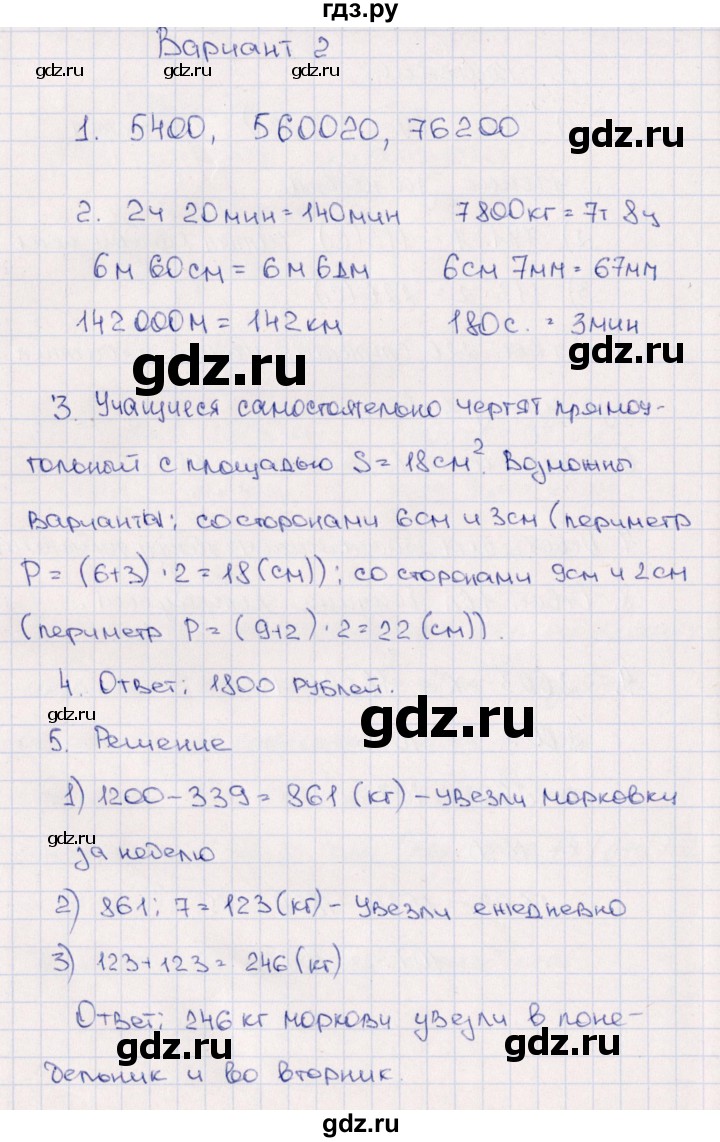 гдз.ру
Вариант 2
gdz.ru gdz.ru gdz.ru
1. 5400, 560020, 76200
gdz.ru
2. 2ч 20мин = 140мин 7800кг = 7т 8ц
6м 60см = 6м 6дм 6см 7мм = 67мм
142000м = 142км 180с. = 3мин
gdz.ru gdz.ru
3. Учащиеся самостоятельно чертят прямоу-
гольный с площадью S = 18см². Возможны
варианты: со сторонами 6см и 3см (периметр
P = (6+3)·2 = 18 (см)); со сторонами 9см и 2см
(периметр P = (9+2)·2 = 22 (см)).
4. Ответ: 1800 рублей.
gdz.ru gdz.ru
5. Решение
1) 1200-339 = 861 (кг) - увезли морковки
gdz.ru
за неделю
2) 861:7 = 123 (кг) - увезли ежедневно
3) 123+123 = 246 (кг)
Ответ: 246 кг моркови увезли в поне-
gdz.ru gdz.ru
дельник и во вторник.
gdz.ru